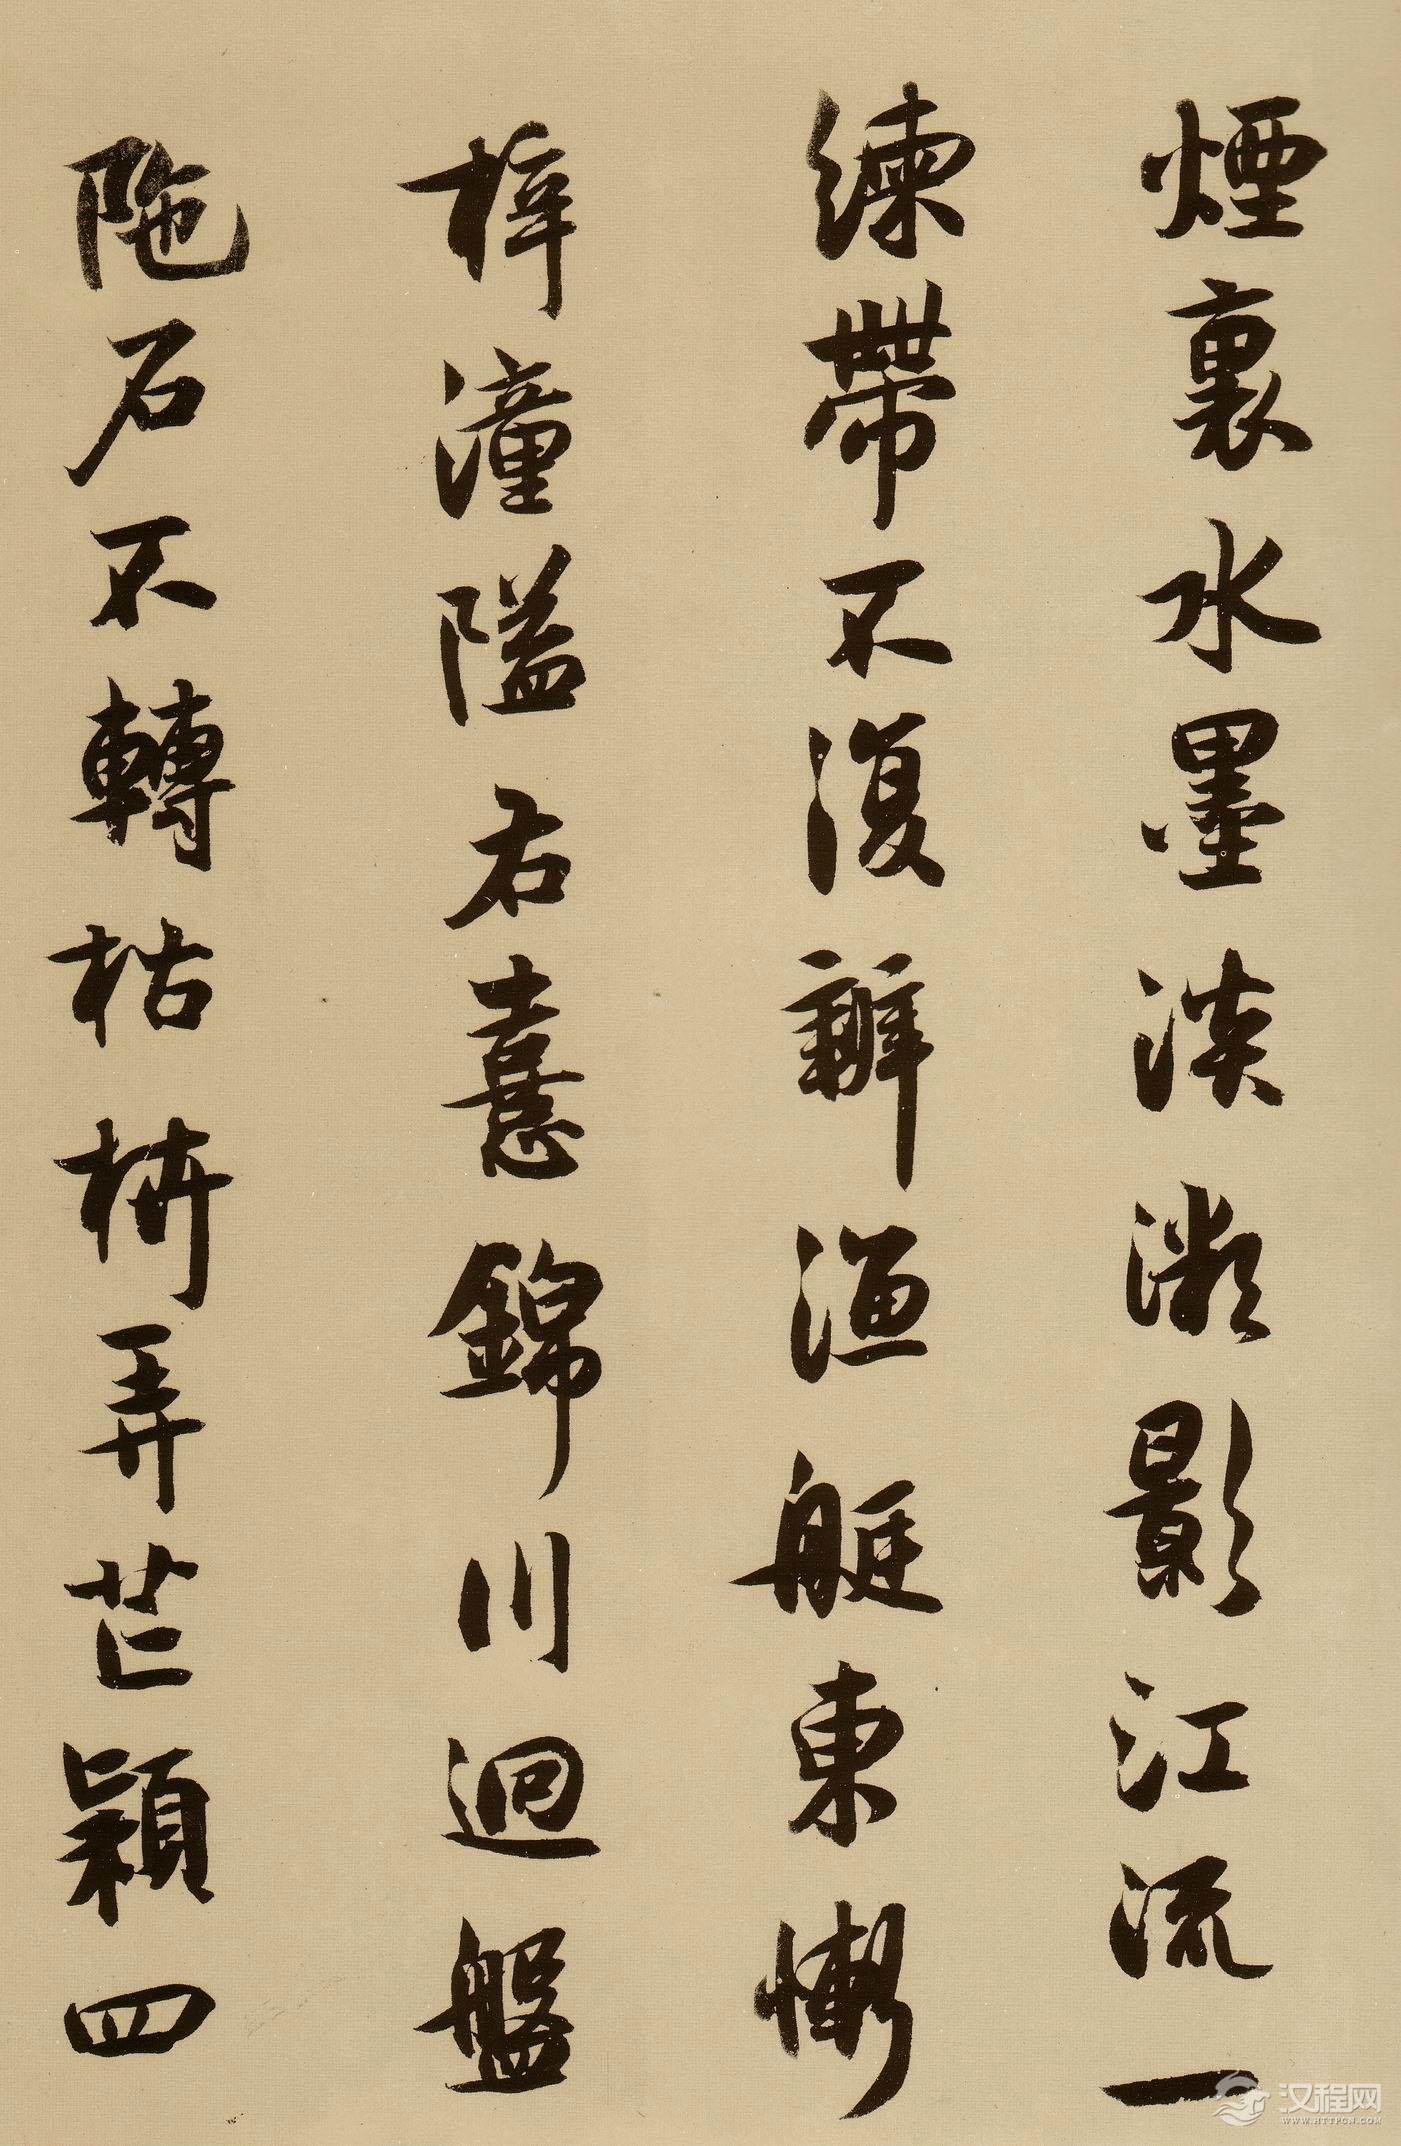 煙裏水墨淡激影江流一
練帶不復辨漁艇東慚
梓潼隘右憙錦川迴盤
陁石不轉枯栟弄芒穎四
汉程网
WWW.HTTPCN.COM